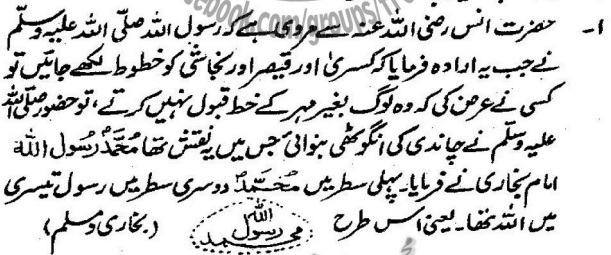 ۱۔ حضرت انس رضی اللہ عنہ سے مروی ہے کہ رسول اللہ صلی اللہ علیہ وسلم
نے جب یہ ارادہ فرمایا کہ کسریٰ اور قیصر اور نجاشی کو خطوط لکھے جائیں تو
کسی نے عرض کی کہ وہ لوگ بغیر مہر کے خط قبول نہیں کرتے، تو حضور صلی اللہ
علیہ وسلم نے چاندی کی انگوٹھی بنوائی جس میں یہ نقش تھا مُحَمَّدٌ رَّسُولُ اللّٰهِ
امام بخاری نے فرمایا۔ پہلی سطر میں مُحَمَّدٌ دوسری سطر میں رسول تیسری
میں اللہ تھا۔ یعنی اس طرح اللہ رسول محمد (بخاری ومسلم)